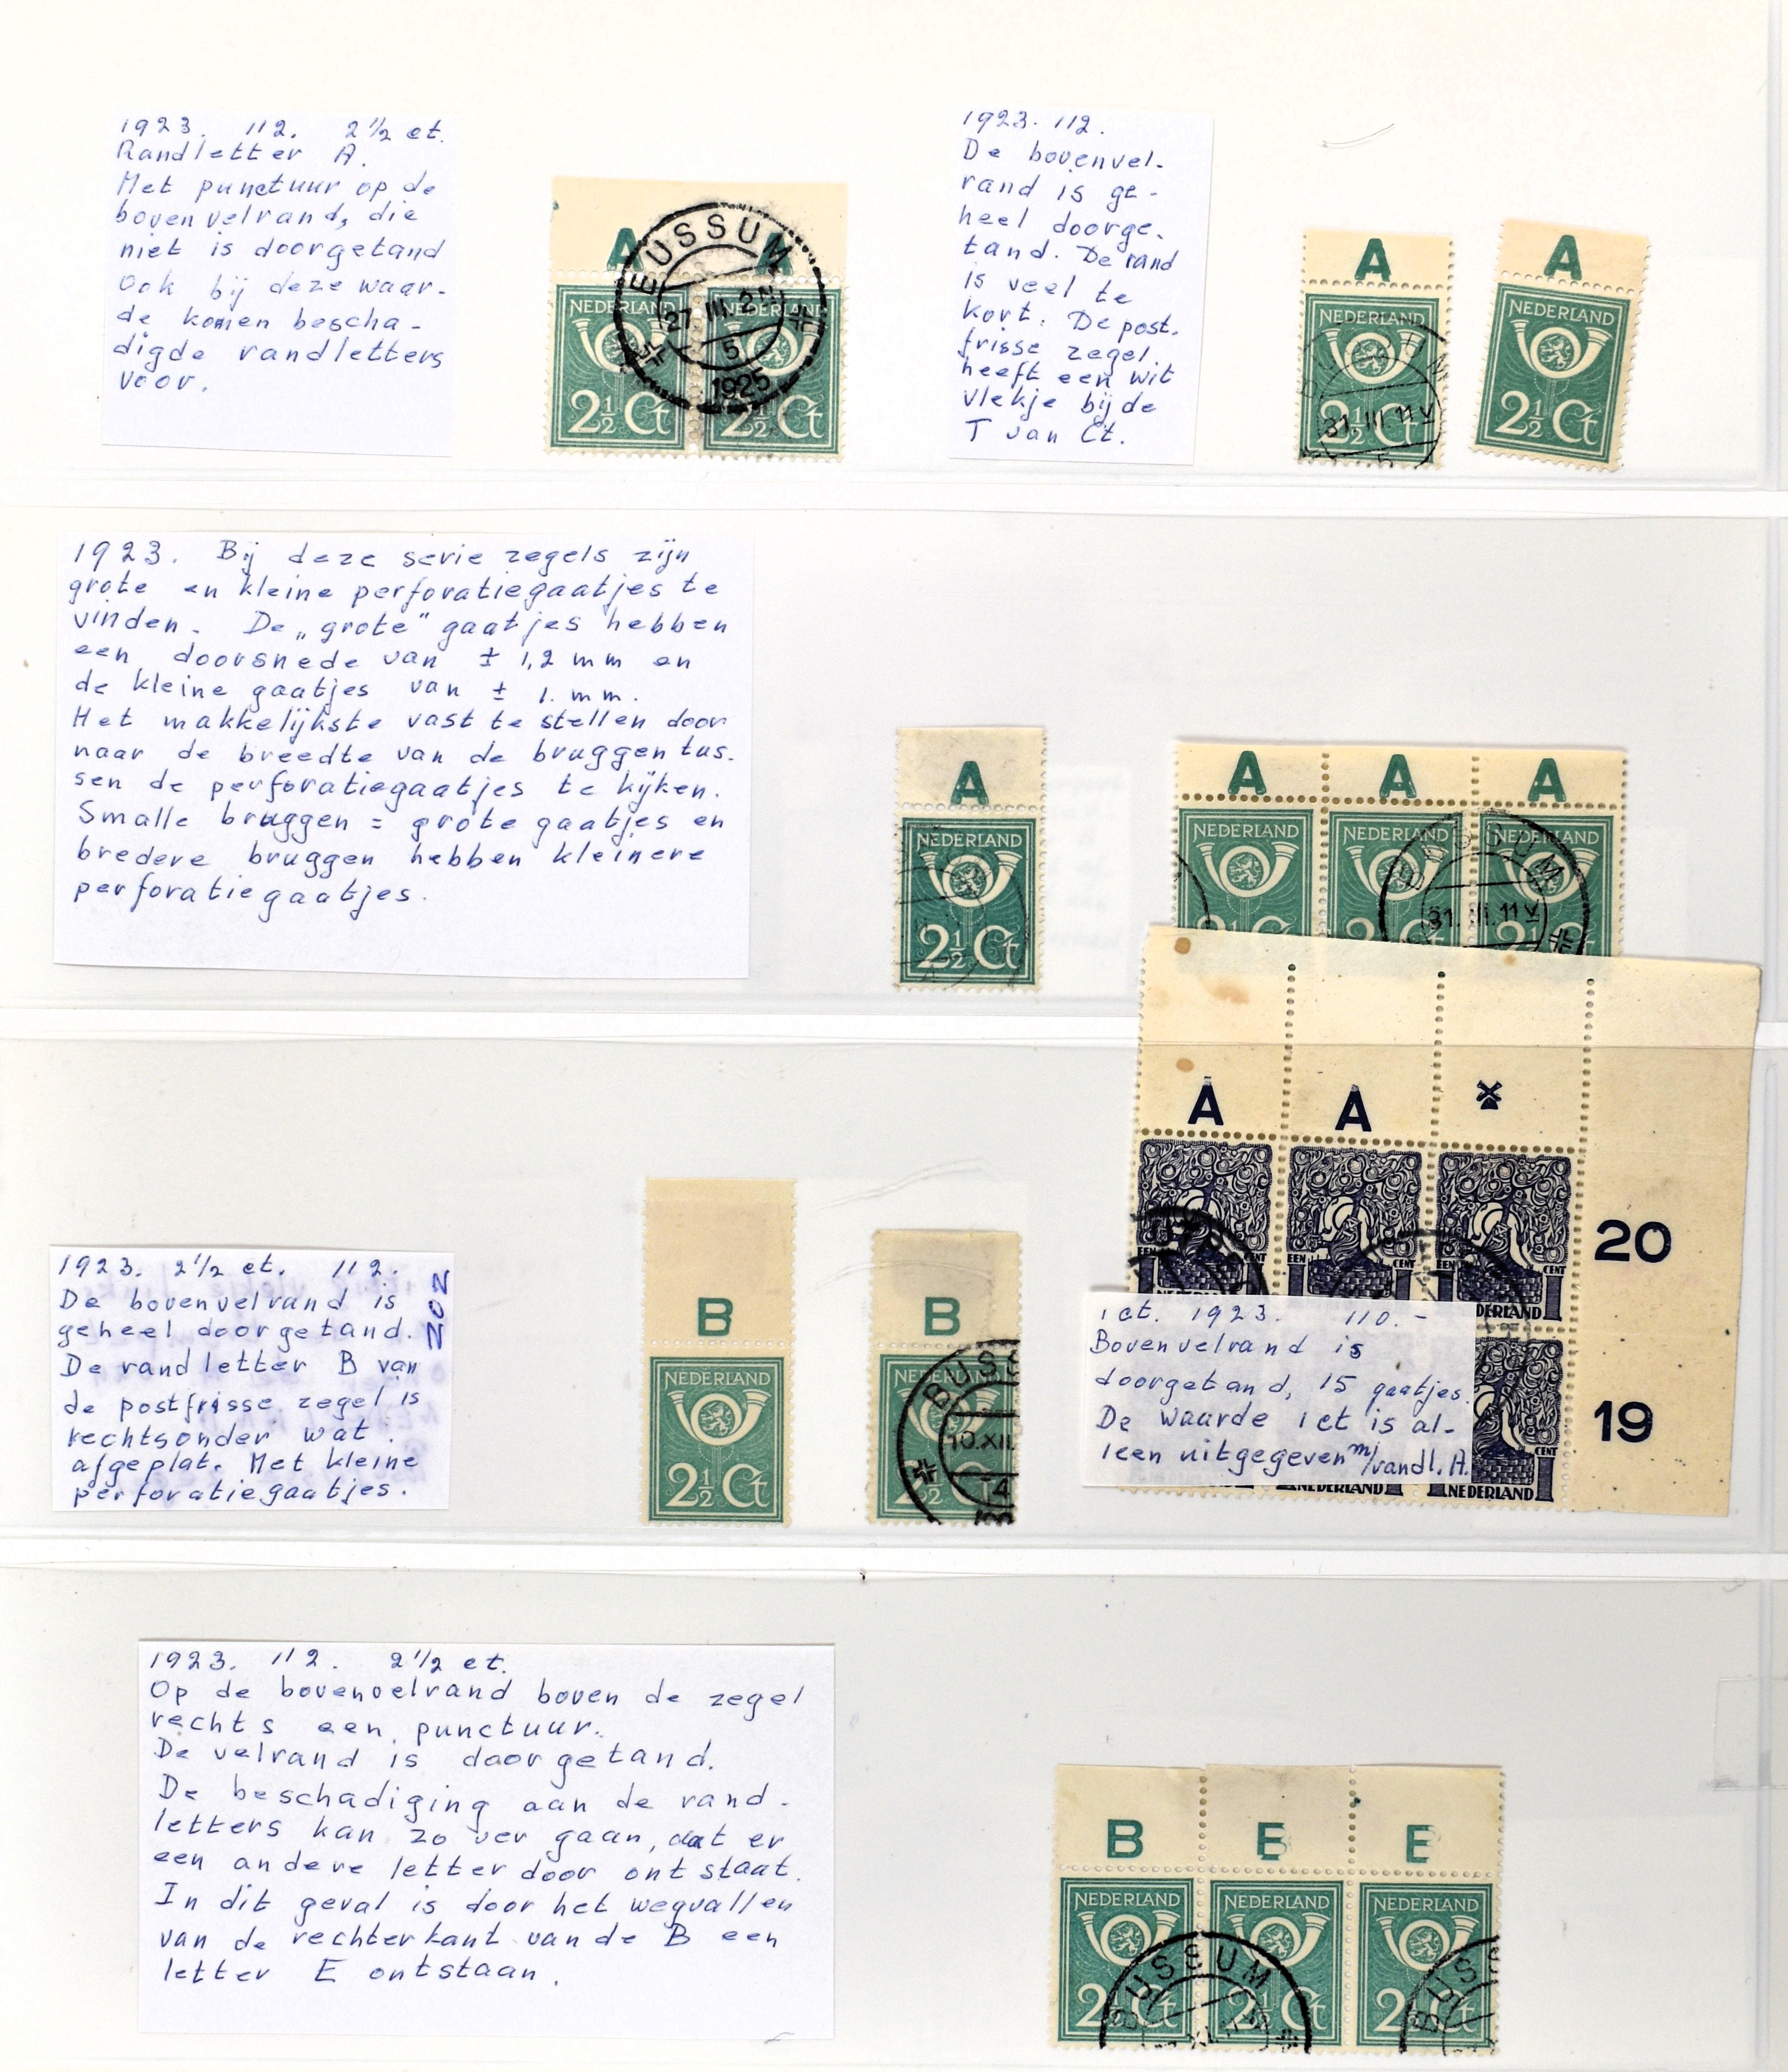 1923. 112. 2½ ct.
Randletter A.
Met punctuur op de
bovenvelrand, die
niet is doorgetand
Ook bij deze waar-
de komen bescha-
digde randletters
voor.
A A
BUSSUM
27 III. 2 N
5
1925
NEDERLAND NEDERLAND
2½ Ct 2½ Ct
1923. 112.
De bovenvel-
rand is ge-
heel doorge-
tand. De rand
is veel te
kort. De post-
frisse zegel
heeft een wit
vlekje bij de
T van Ct.
A A
NEDERLAND NEDERLAND
2½ Ct 2½ Ct
31. III 11 V
5
1923. Bij deze serie zegels zijn
grote en kleine perforatiegaatjes te
vinden. De „grote" gaatjes hebben
een doorsnede van ± 1,2 mm en
de kleine gaatjes van ± 1. mm.
Het makkelijkste vast te stellen door
naar de breedte van de bruggen tus-
sen de perforatiegaatjes te kijken.
Smalle bruggen = grote gaatjes en
bredere bruggen hebben kleinere
perforatiegaatjes.
A
NEDERLAND
2½ Ct
A A A
NEDERLAND NEDERLAND NEDERLAND
BUSSUM
31. III. 11 V
2½ Ct 2½ Ct 2½ Ct
A A
20
EEN CENT EEN CENT EEN CENT
NEDERLAND
19
CENT
NEDERLAND NEDERLAND
1 ct. 1923. 110.-
Bovenvelrand is
doorgetand, 15 gaatjes.
De waarde 1 ct is al-
leen uitgegeven m/randl. A.
1923. 2½ ct. 112.
De bovenvelrand is
geheel doorgetand.
De randletter B van
de postfrisse zegel is
rechtsonder wat
afgeplat. Met kleine
perforatiegaatjes.
202
B B
NEDERLAND NEDERLAND
2½ Ct 2½
BUSS
10.XII.
4
1923. 112. 2½ ct.
Op de bovenvelrand boven de zegel
rechts een punctuur.
De velrand is doorgetand.
De beschadiging aan de rand-
letters kan zo ver gaan, dat er
een andere letter door ontstaat.
In dit geval is door het wegvallen
van de rechterkant van de B een
letter E ontstaan.
B E E
NEDERLAND NEDERLAND NEDERLAND
2½ Ct 2½ Ct 2½ Ct
BUSSUM BUSS